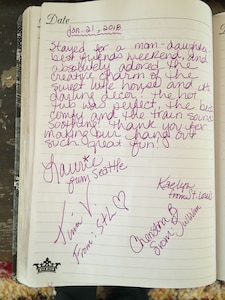 Date
Jan. 21, 2018
Stayed for a mom-daughter
best friends weekend, and
absolutely adored the
creative charm of the
sweet little house and its
daytime decor. The hot
tub was perfect, the beds
comfy and the train sounds
soothing! Thank you for
making our hangs out
such great fun!
Laurie
from Seattle
Kaelyn
from St. Louis
Trina V.
From: STL ♡
Christina B
from Sullivan